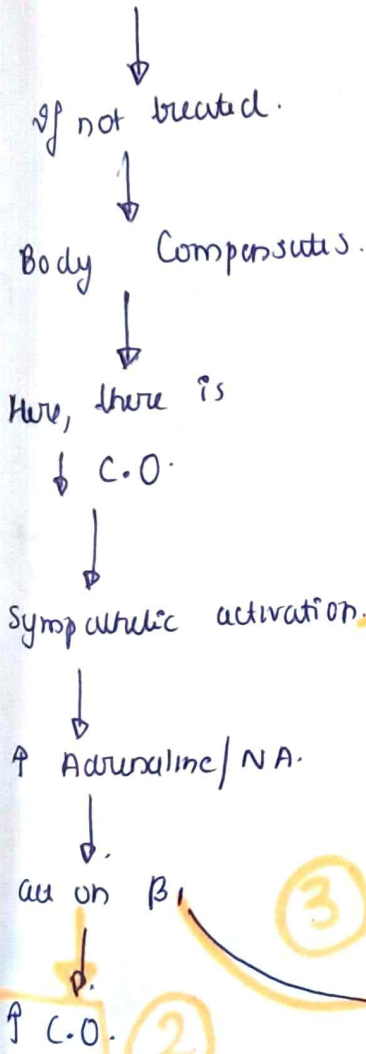 If not treated.
Body Compensates.
Here, there is
↓ C.O.
Sympathetic activation.
↑ Adrenaline/NA.
act on β1
3
↑ C.O.
2